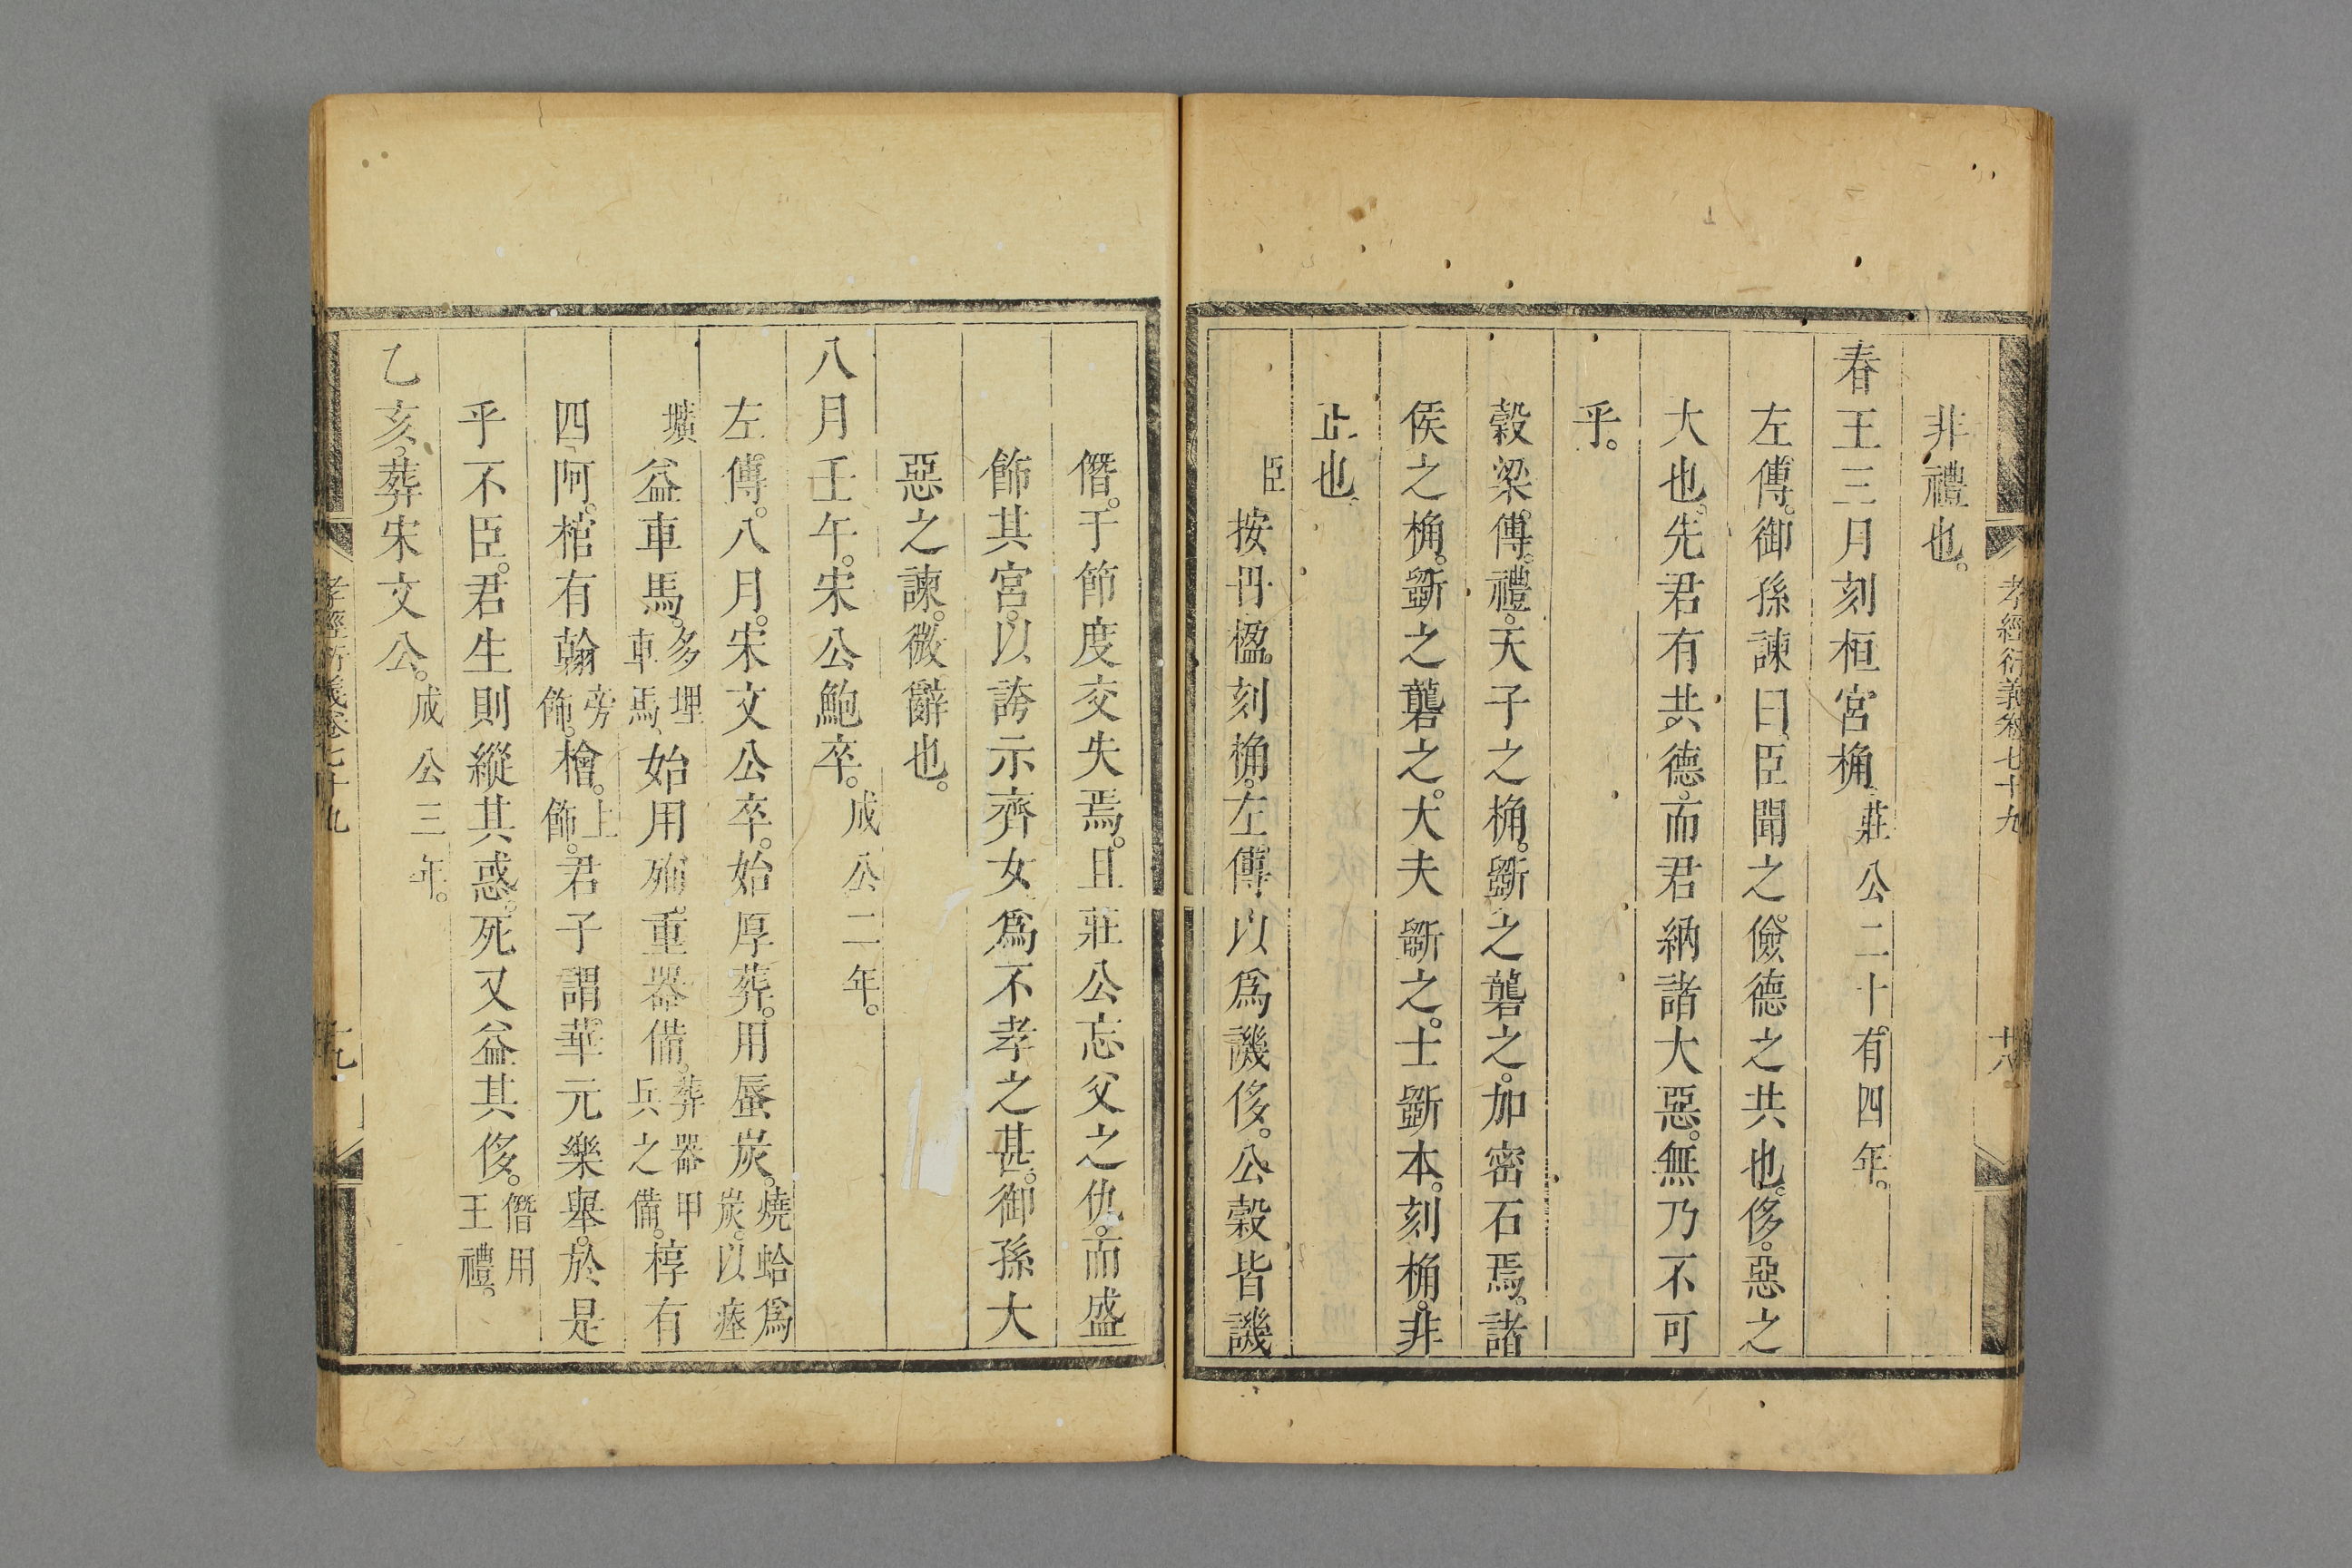 孝經衍義卷七十九
十八
非禮也。
春王三月刻桓宮桷。莊公二十有四年。
左傳。御孫諫曰、臣聞之。儉德之共也。侈。惡之
大也。先君有共德。而君納諸大惡。無乃不可
乎。
穀梁傳。禮。天子之桷。斲之礱之。加密石焉。諸
侯之桷。斲之礱之。大夫斲之。士斲本。刻桷。非
正也。
臣按丹楹。刻桷。左傳以爲譏侈。公穀皆譏
僭。于節度交失焉。且莊公忘父之仇。而盛
飾其宮。以誇示齊女。爲不孝之甚。御孫大
惡之諫。微辭也。
八月壬午。宋公鮑卒。成公二年。
左傳。八月。宋文公卒。始厚葬。用蜃炭。燒蛤爲炭。以瘞
壙益車馬。多埋車馬、始用殉。重器備。葬器甲兵之備。椁有
四阿。棺有翰旁飾。檜。上飾。君子謂。華元樂舉。於是
乎不臣。君生則縱其惑。死又益其侈。僭用王禮。
乙亥。葬宋文公。成公三年。
孝經衍義卷七十九
十九